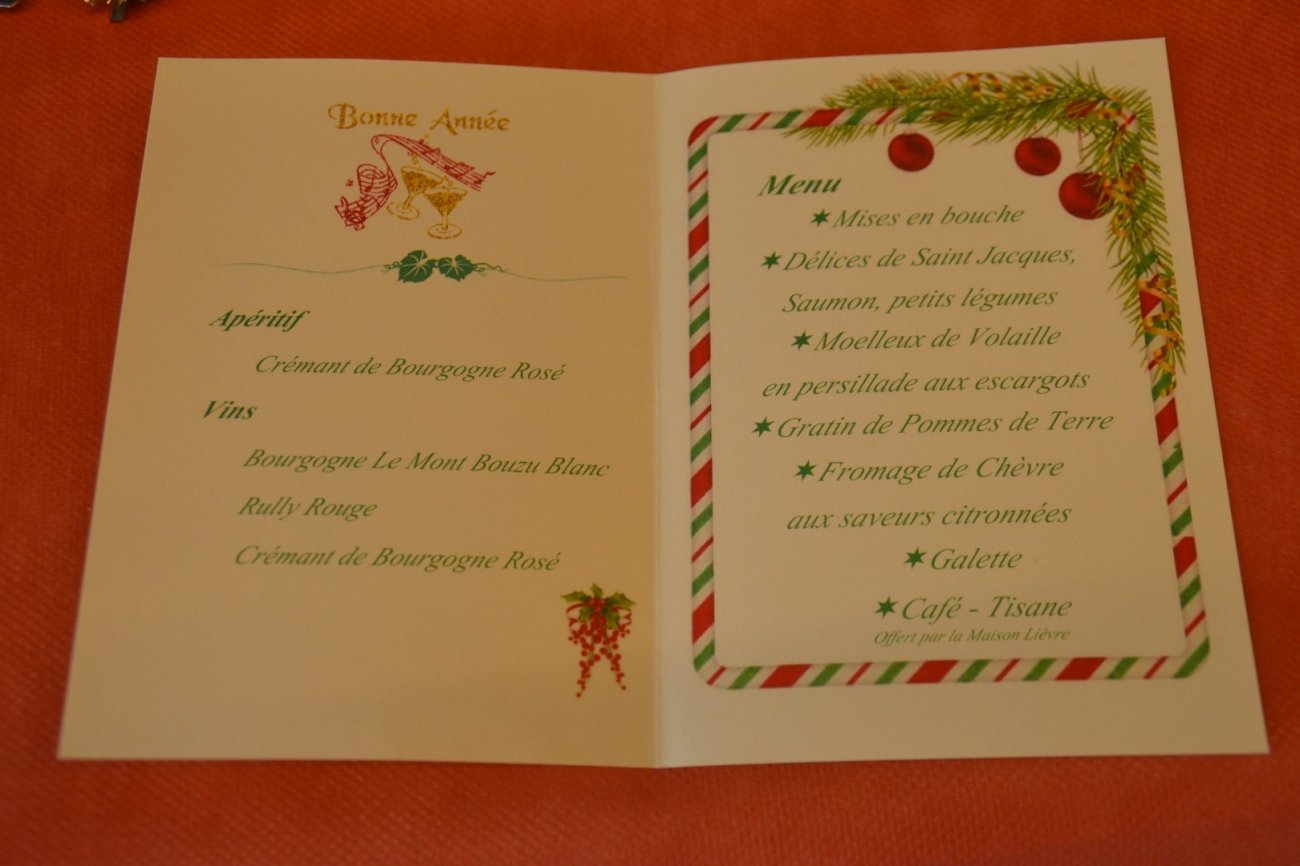 Bonne Année
Apéritif
Crémant de Bourgogne Rosé
Vins
Bourgogne Le Mont Bouzu Blanc
Rully Rouge
Crémant de Bourgogne Rosé
Menu
✶ Mises en bouche
✶ Délices de Saint Jacques,
Saumon, petits légumes
✶ Moelleux de Volaille
en persillade aux escargots
✶ Gratin de Pommes de Terre
✶ Fromage de Chèvre
aux saveurs citronnées
✶ Galette
✶ Café - Tisane
Offert par la Maison Lièvre